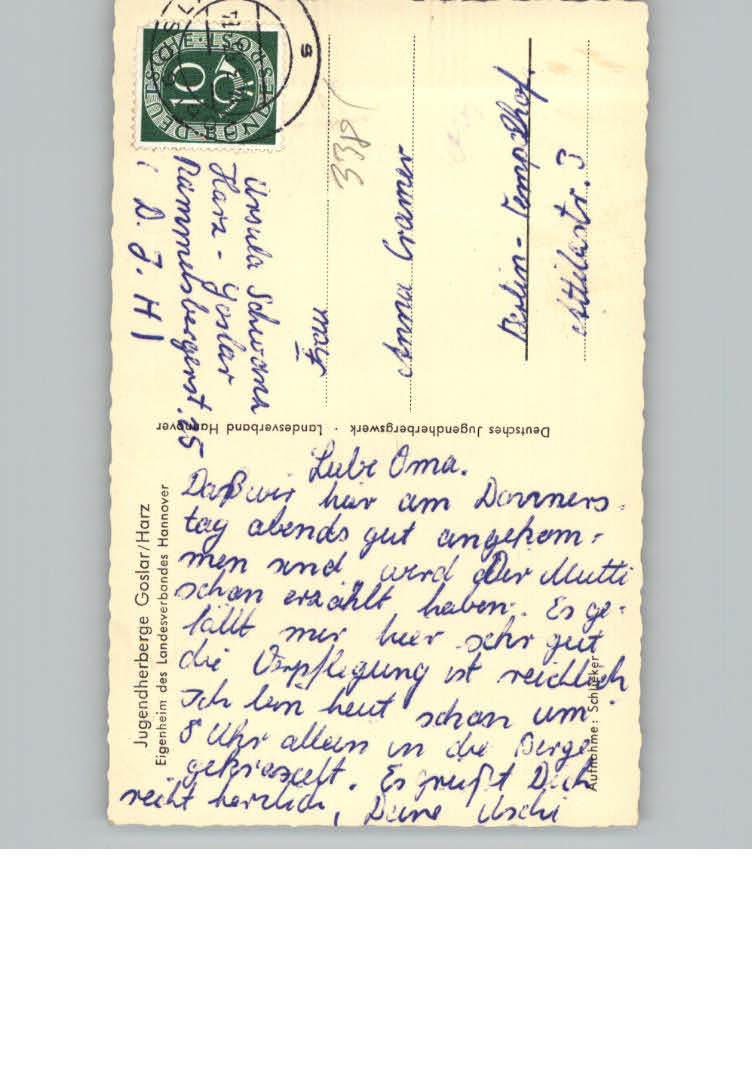 Jugendherberge Goslar/Harz
Eigenheim des Landesverbandes Hannover
Liebe Oma.
Daß wir hier am Donners-
tag abends gut angekom-
men sind, wird Dir Mutti
schon erzählt haben. Es ge-
fällt mir hier sehr gut
die Verpflegung ist reichlich
Ich bin heut schon um
8 Uhr allein in die Berge
gekraxelt. Es grüßt Dich
recht herzlich, Deine Uschi
Aufnahme: Schlieker
Deutsches Jugendherbergswerk · Landesverband Hannover
Ursula
Harz - Goslar
Rammelsbergerst. 25
( D. J. H )
DEUTSCHE POST
10
3389
Frau
Anna Cramer
Berlin-Tempelhof.
Attilastr. 3